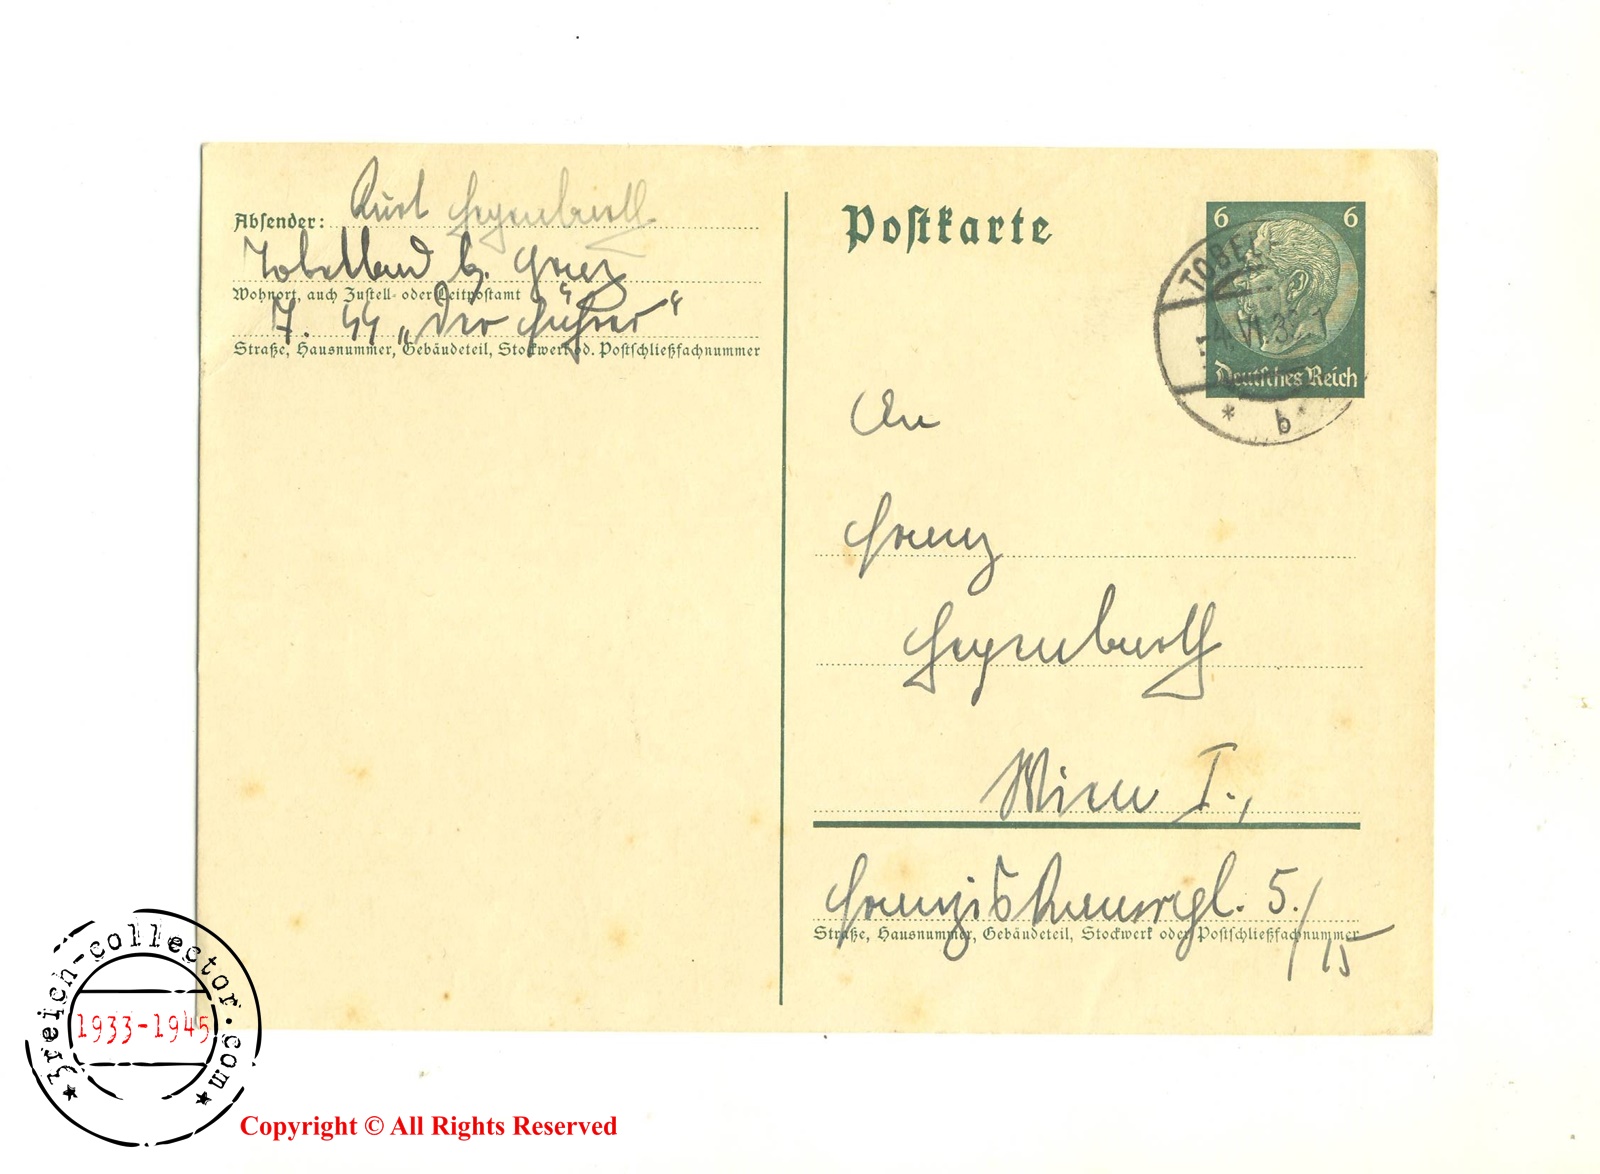 Absender: Kurt Hegenbarth
Tobelbad b. Graz
Wohnort, auch Zustell- oder Leitpostamt
7. SS „Der Führer“
Straße, Hausnummer, Gebäudeteil, Stockwerk od. Postschließfachnummer
Postkarte
6 6
Deutsches Reich
TOBEL
-4.VI.38.
* b *
An
Franz
Hegenbarth
Wien I.,
Franziskanerpl. 5./15
Straße, Hausnummer, Gebäudeteil, Stockwerk oder Postschließfachnummer
3reich-collector.com
1933-1945
Copyright © All Rights Reserved